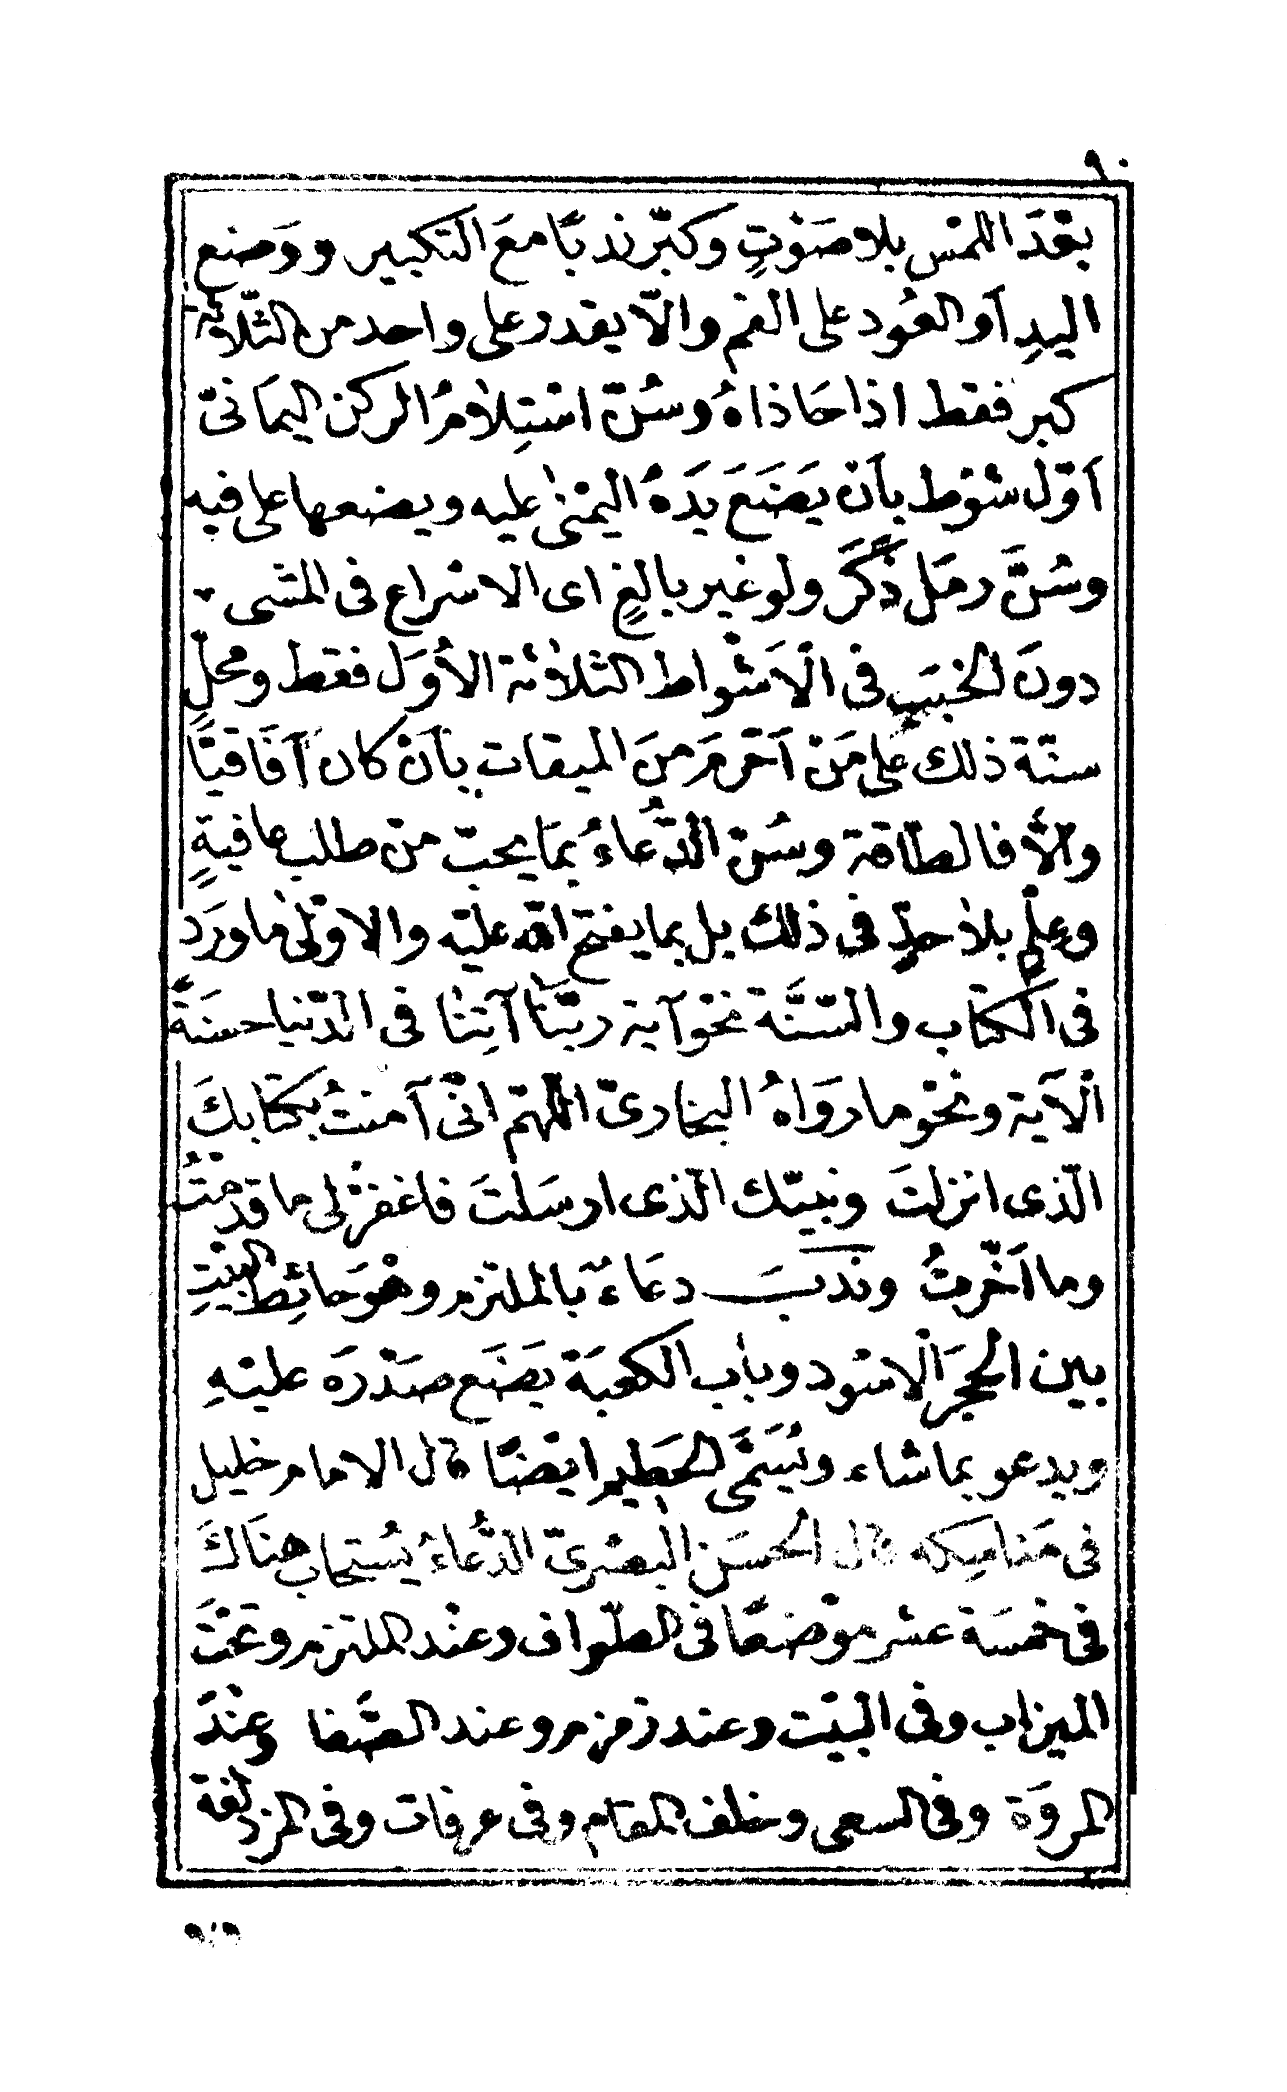 ٩٠
بعْدَ اللمْس بلا صَوْتٍ وكبّر ندبًا مَعَ التكبير ووَضنع
اليدِ أو العُود على الفم والّا يقدر على واحد من الثّلاثة
كبر فقط اذا حَاذاهُ وسُنّ اسْتِلاٰمُ الركن اليمَانىّ
أوّل شوْط بأنْ يَضَعَ يَدَهُ اليمْنىٰ عليه ويضعها على فيه
وسُنَّ رمَل ذَكَرٍ ولو غير بالِغٍ اى الاسْراع فى المشى
دونَ الخبَبِ فى الْاَشْواط الثلاٰثة الأُوَل فقط ومحلّ
سنّة ذلك على مَنْ اَحْرمَ مِنَ الميقات بأنْ كان آفَاقيًّا
والّا فالطّاقة وسُنّ الدُّعاءُ بمَا يحبّ منْ طلب عافيةٍ
وعِلْمٍ بلاٰ حدٍّ فى ذلك بل بما يفتح الله عليْه والاوْلىٰ ما ورَد
فى الكتاب والسّنَّة نحْو آية ربّنَا آتِنٰا فى الدّنيا حسنَةً
الْآية ونحْو ما رَوَاهُ البخارىّ اللّهمّ انّى آمنتُ بكتابكَ
الّذى انزلتَ ونبيّك الّذى ارسَلتَ فاغفرْ لى ما قدمْتُ
وما اَخّرتُ وندبَ دعَاءٌ بالملتزم وهْوَ حائِط البيْتِ
بين الحجَر الْاسْود وبابِ الكعبَة يَضَع صَدْرَه عليْهِ
ويدعو بما شاء ويُسَمَّى الحَطِيم ايْضًا قال الامام خليل
فى مَناسِكه قال الحسَن البصْرىّ الدُّعاءُ يُستجاب هنَاكَ
فى خمسَة عشر موْضعًا فى الطّواف وعنْد الملتزم وتحْتَ
الميزاب وفى البيْت وعند زمزم وعند الصَّفا وعِنْدَ
المروَة وفى السعى وخلف المقام وفى عرفات وفى المزدلفة